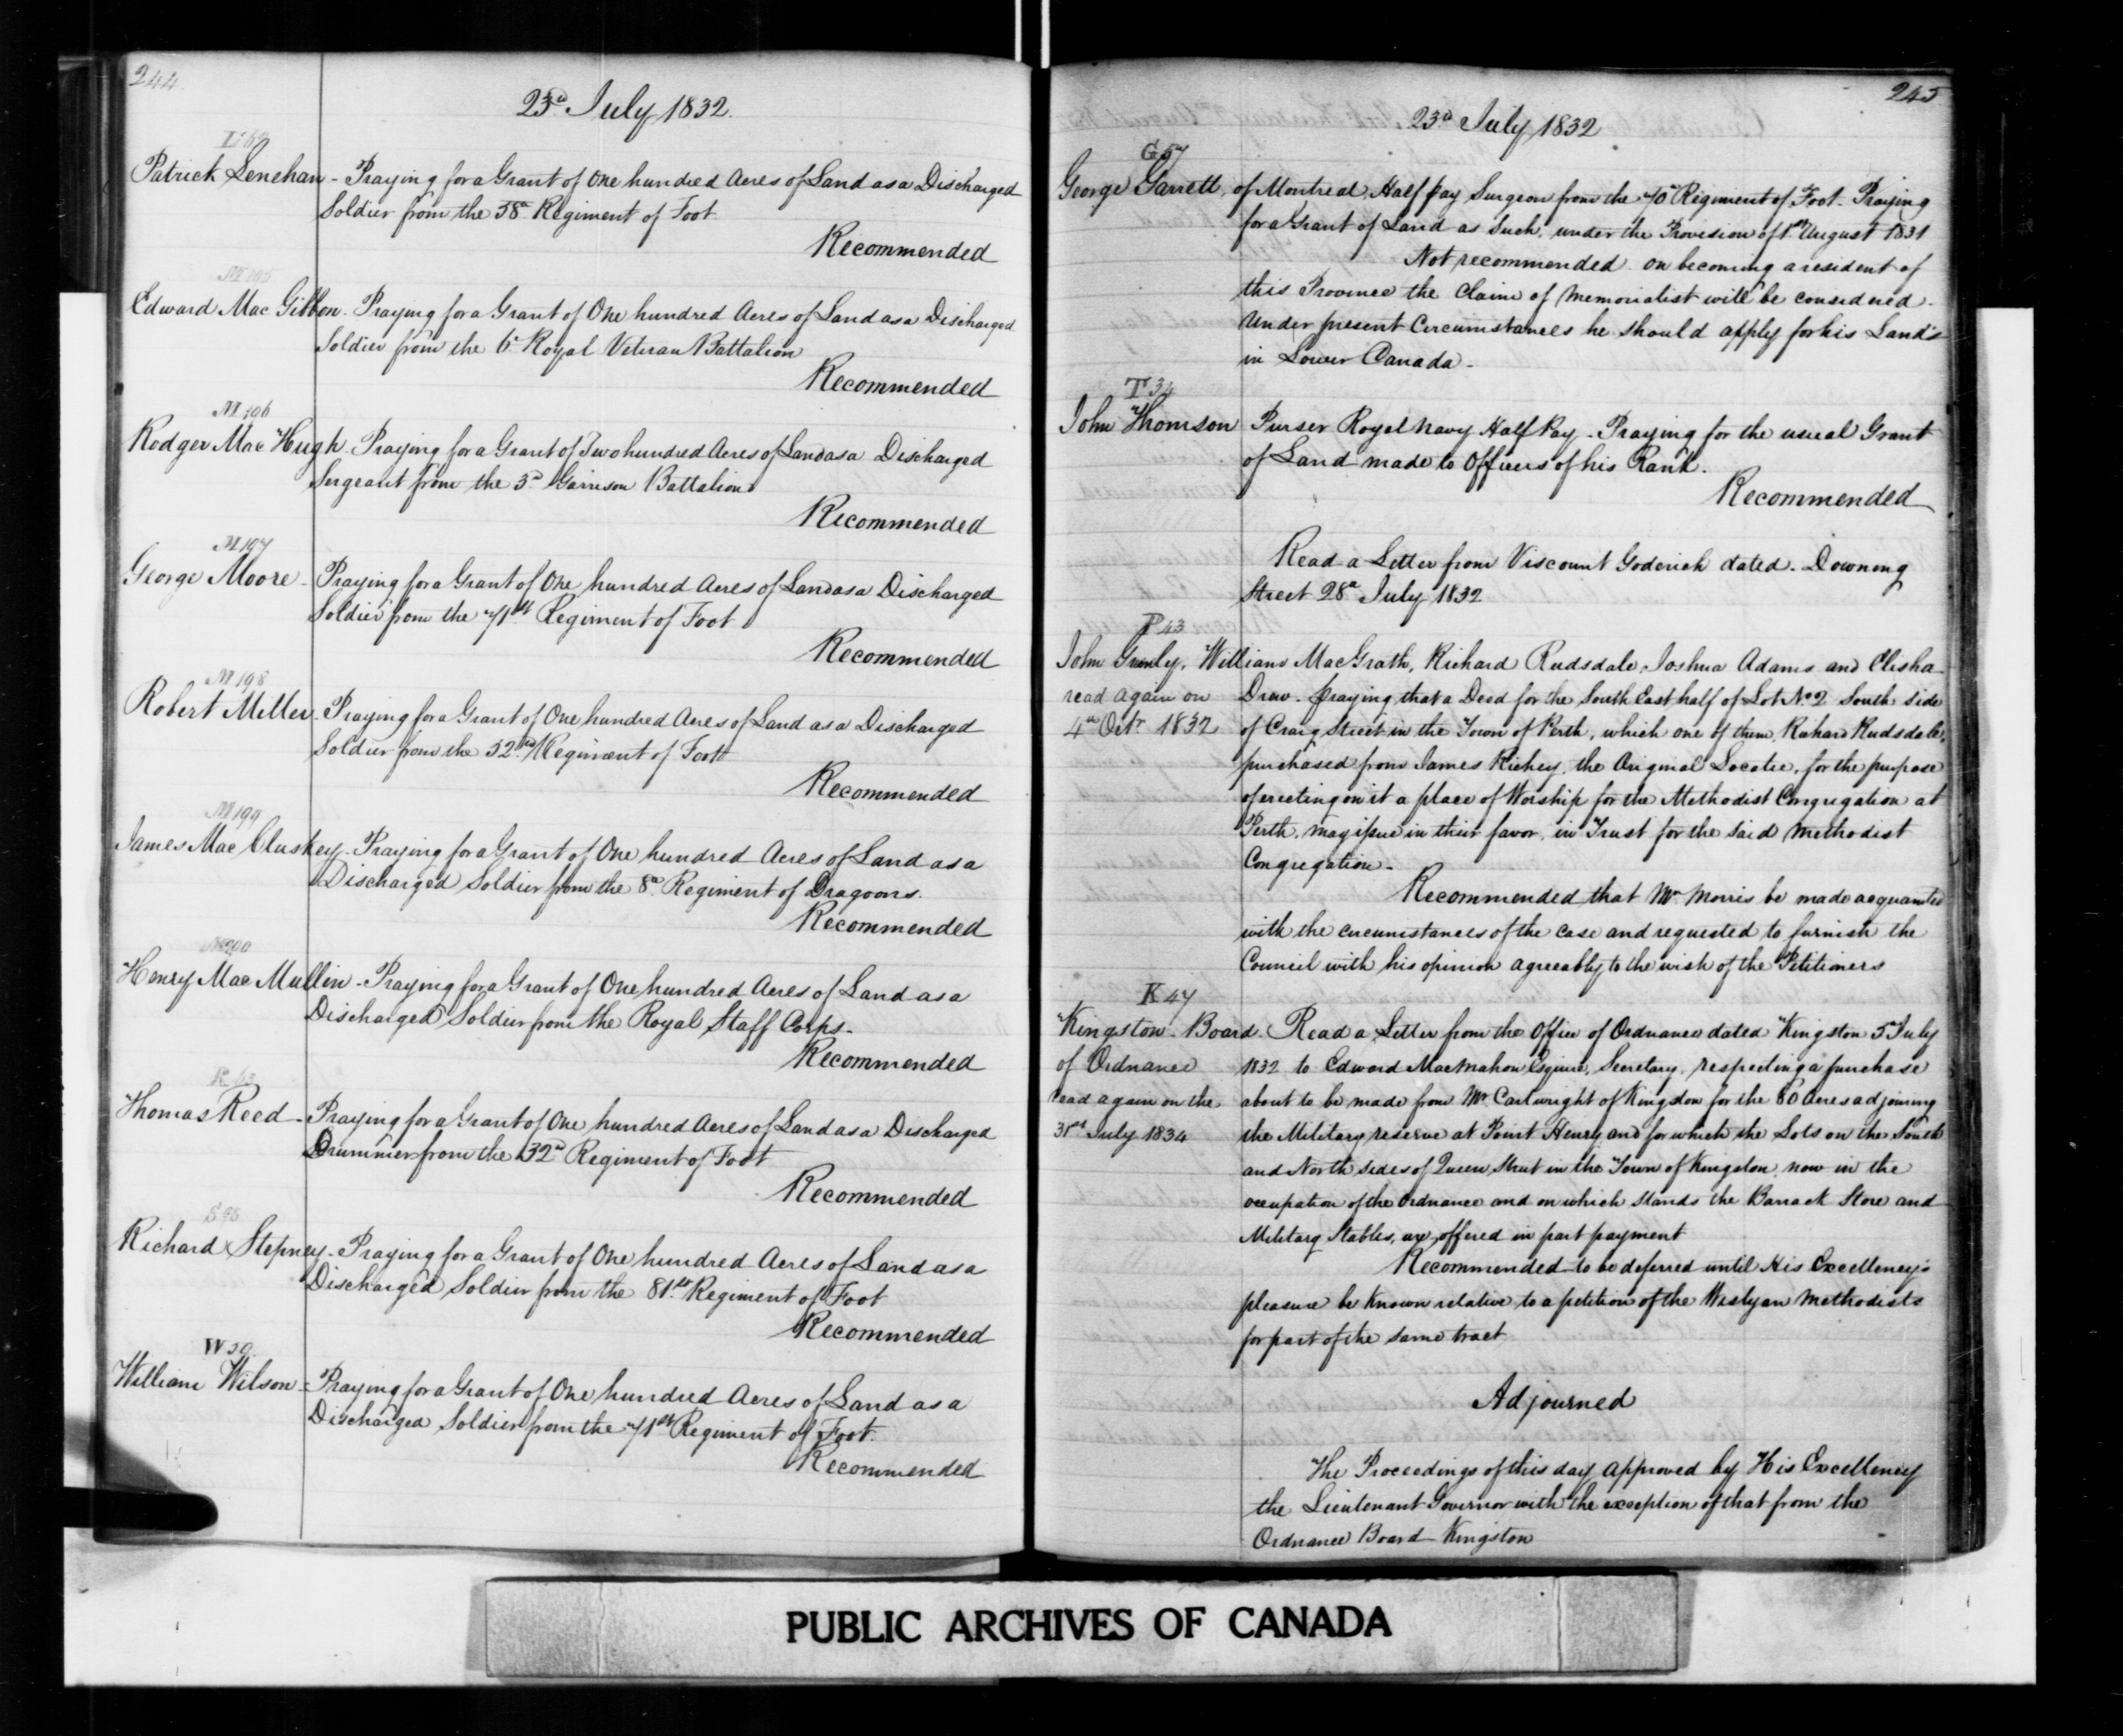 244
23d July 1832.
Patrick Lenehan - Praying for a Grant of One hundred Acres of Land as a Discharged
Soldier from the 38th Regiment of Foot
Recommended
M 195
Edward Mac Gibbon. Praying for a Grant of One hundred Acres of Land as a Discharged
Soldier from the 6th Royal Veteran Battalion
Recommended
M 196
Rodger Mac Hugh. Praying for a Grant of Two hundred Acres of Land as a Discharged
Sergeant from the 3d Garrison Battalion
Recommended
M 197
George Moore - Praying for a Grant of One hundred Acres of Land as a Discharged
Soldier from the 71st Regiment of Foot
Recommended
M 198
Robert Miller - Praying for a Grant of One hundred Acres of Land as a Discharged
Soldier from the 52nd Regiment of Foot
Recommended
M 199
James Mac Cluskey - Praying for a Grant of One hundred Acres of Land as a
Discharged Soldier from the 8th Regiment of Dragoons.
Recommended
M 200
Henry Mac Mullin - Praying for a Grant of One hundred Acres of Land as a
Discharged Soldier from the Royal Staff Corps -
Recommended
Thomas Reed - Praying for a Grant of One hundred Acres of Land as a Discharged
Drummer from the 32d Regiment of Foot
Recommended
Richard Stepney - Praying for a Grant of One hundred Acres of Land as a
Discharged Soldier from the 81st Regiment of Foot
Recommended
W 39.
William Wilson - Praying for a Grant of One hundred Acres of Land as a
Discharged Soldier from the 71st Regiment of Foot.
Recommended
245
23d July 1832
G 57
George Garrett, of Montreal, Half pay Surgeon from the 70th Regiment of Foot - Praying
for a Grant of Land as Such, under the Provision of 1st August 1831
Not recommended. on becoming a resident of
this Province the Claim of Memorialist will be considered -
Under present Circumstances he should apply for his Lands
in Lower Canada -
T 34
John Thomson Purser Royal Navy Half Pay - Praying for the usual Grant
of Land made to Officers of his Rank.
Recommended
Read a Letter from Viscount Goderich dated - Downing
Street 28th July 1832
P 43
John Gurly, William MacGrath, Richard Rudsdale, Joshua Adams and Elisha
read again on Drew - praying that a Deed for the South East half of Lot No 2 South side
4th Octr 1832 of Craig Street in the Town of Perth, which one of them, Richard Rudsdale,
purchased from James Richey, the Original Locatee, for the purpose
of erecting on it a place of Worship for the Methodist Congregation at
Perth, may issue in their favor, in Trust for the said Methodist
Congregation -
Recommended that Mr Morris be made acquainted
with the circumstances of the case and requested to furnish the
Council with his opinion agreeably to the wish of the Petitioners
K 47
Kingston - Board. Read a Letter from the Office of Ordnance dated Kingston 5 July
of Ordnance 1832 to Edward MacMahon Esquire, Secretary, respecting a purchase
read again on the about to be made from Mr Cartwright of Kingston for the 80 Acres adjoining
31st July 1834 the Military reserve at Point Henry and for which the Lots on the South
and North sides of Queen Street in the Town of Kingston now in the
occupation of the Ordnance and on which stands the Barrack Store and
Military Stables, are offered in part payment
Recommended to be deferred until His Excellency's
pleasure be known relative to a petition of the Wesleyan Methodists
for part of the same tract
Adjourned
The Proceedings of this day approved by His Excellency
the Lieutenant Governor with the exception of that from the
Ordnance Board Kingston
PUBLIC ARCHIVES OF CANADA